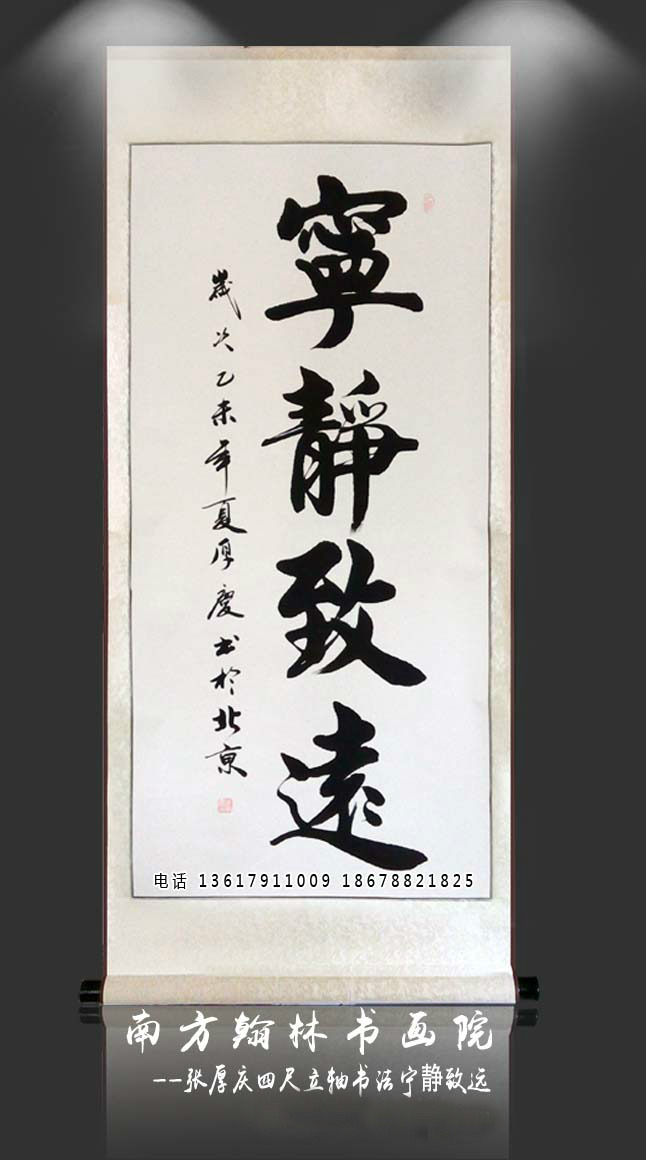 寧靜致遠
歲次乙未年夏厚慶书於北京
电话 13617911009 18678821825
南方翰林书画院
--张厚庆四尺立轴书法宁静致远